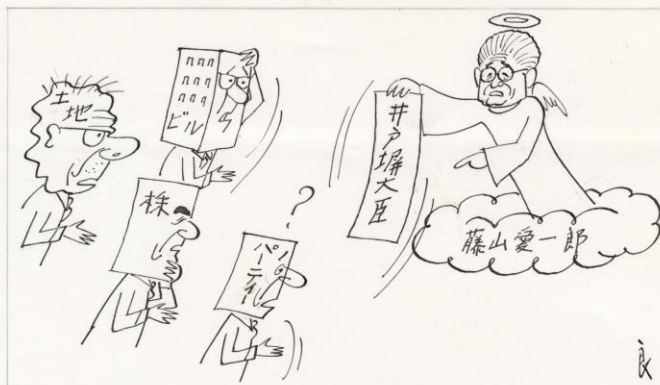 土地
ビル
株
?
パーティー
井戸塀大臣
藤山愛一郎
良